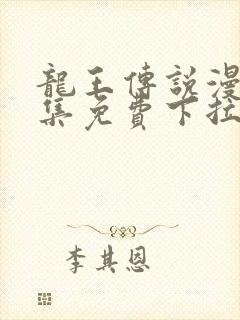 龍王傳説漫
集免費下拉
李其恩